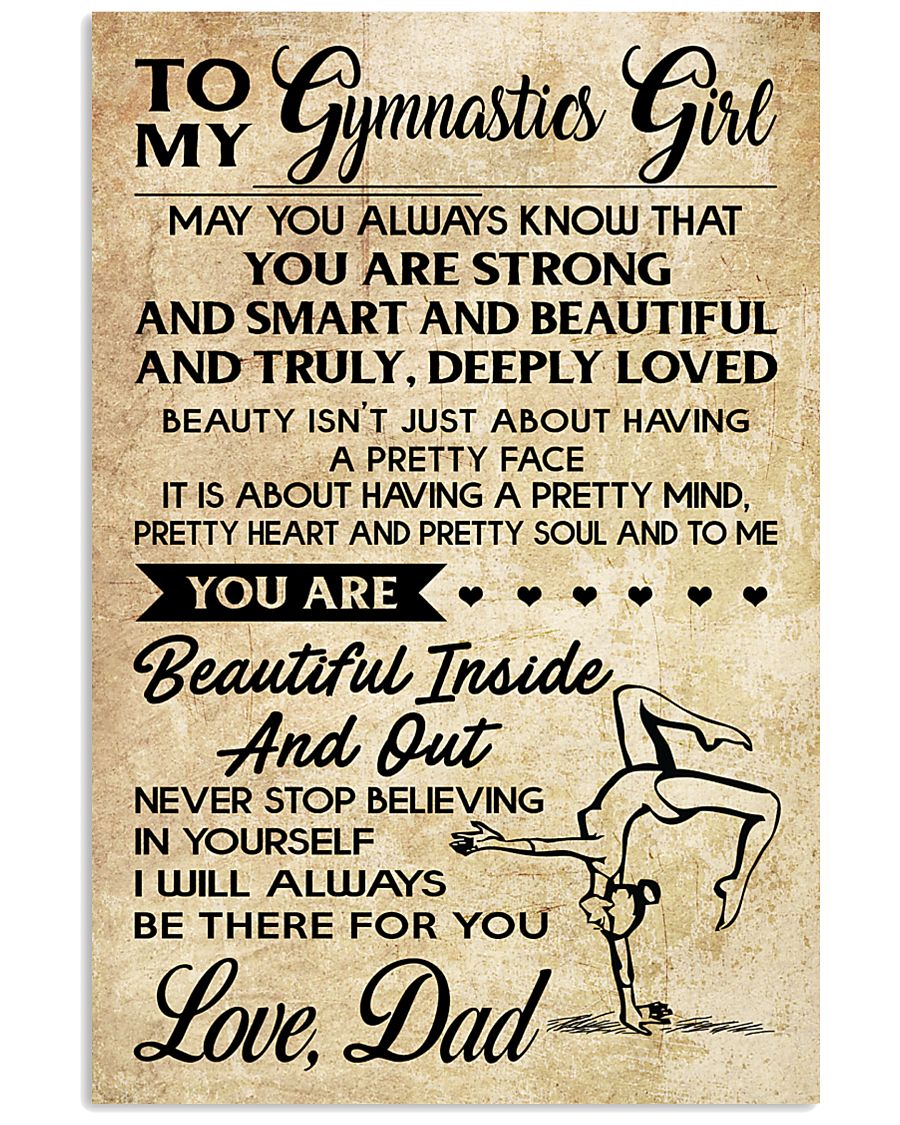 TO MY Gymnastics Girl
MAY YOU ALWAYS KNOW THAT
YOU ARE STRONG
AND SMART AND BEAUTIFUL
AND TRULY, DEEPLY LOVED
BEAUTY ISN'T JUST ABOUT HAVING
A PRETTY FACE
IT IS ABOUT HAVING A PRETTY MIND,
PRETTY HEART AND PRETTY SOUL AND TO ME
YOU ARE
Beautiful Inside
And Out
NEVER STOP BELIEVING
IN YOURSELF
I WILL ALWAYS
BE THERE FOR YOU
Love, Dad